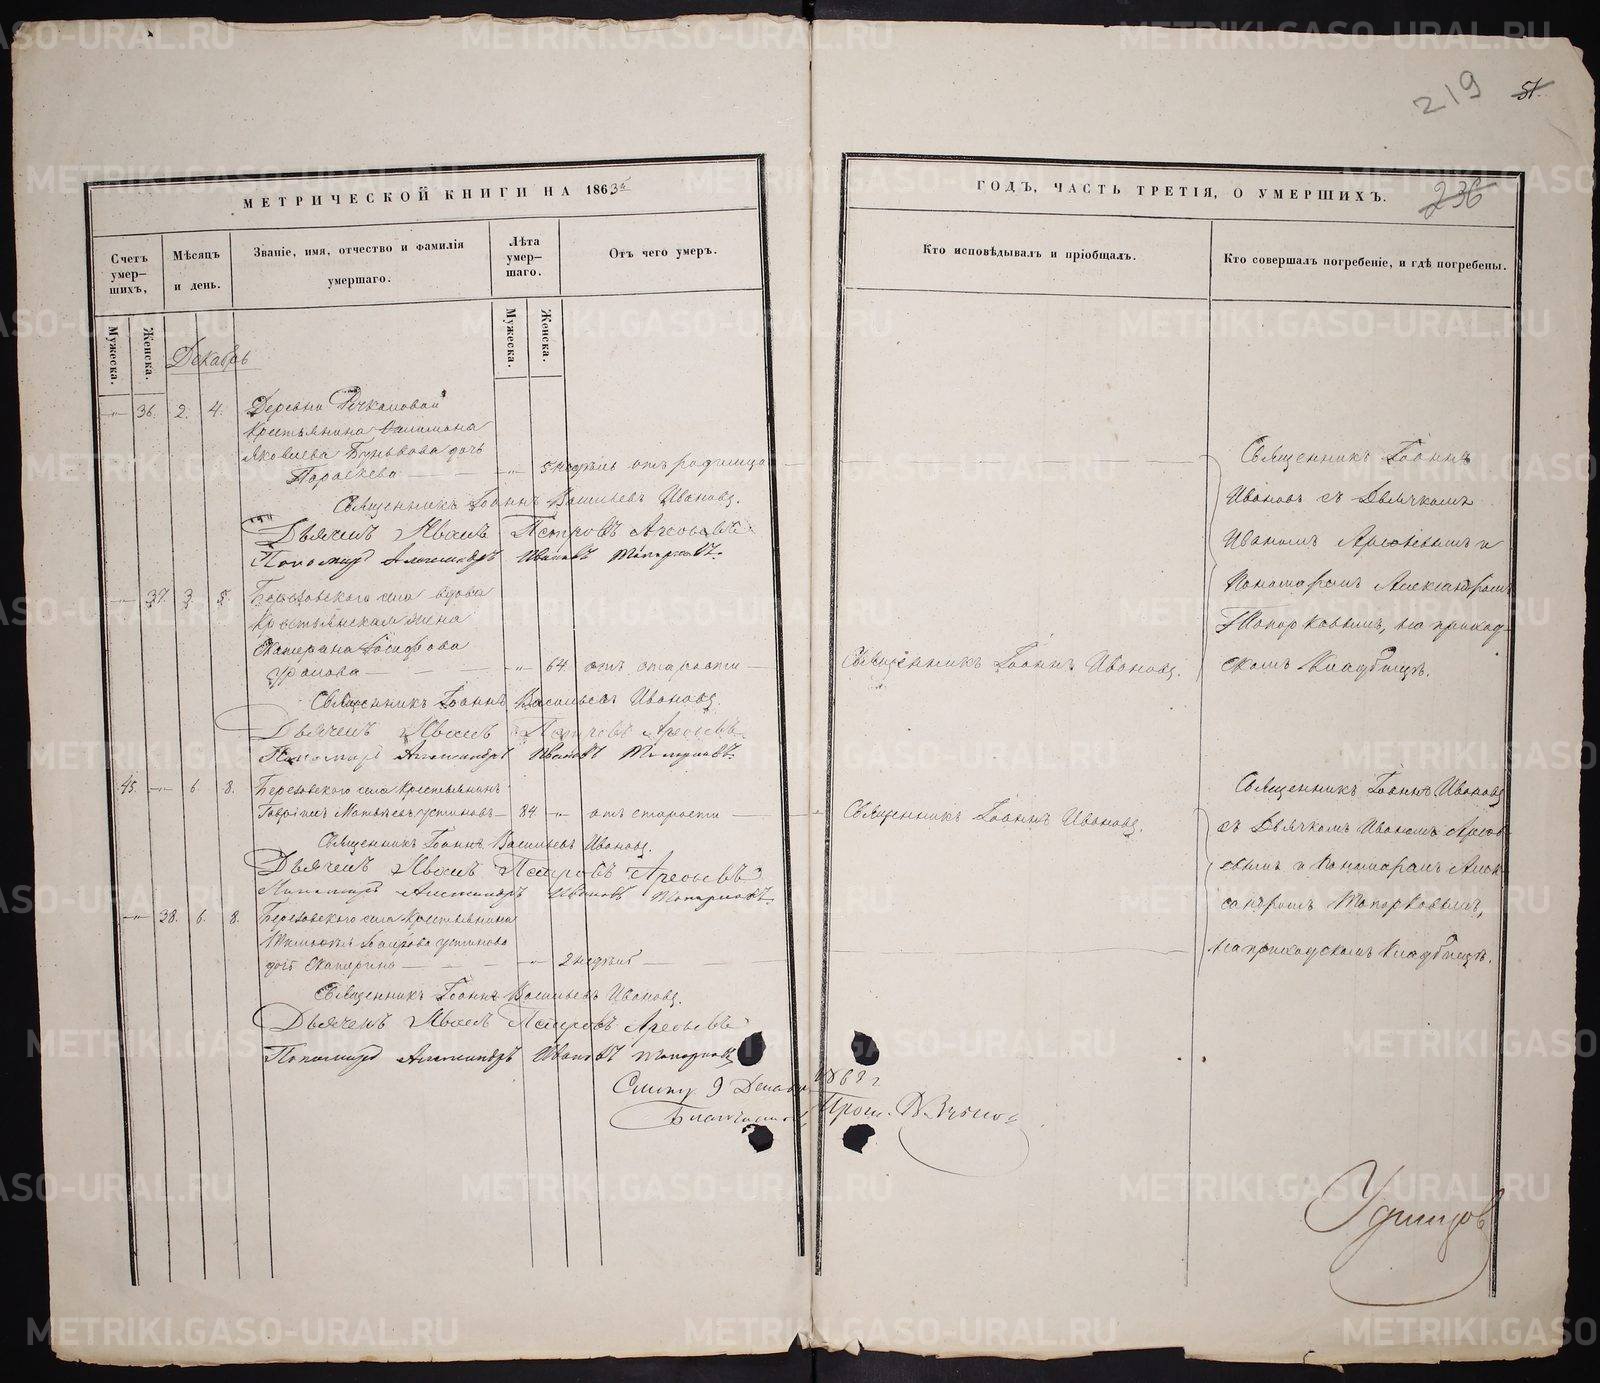 219
51.
МЕТРИЧЕСКОЙ КНИГИ НА 1863й
ГОДЪ, ЧАСТЬ ТРЕТІЯ, О УМЕРШИХЪ.
236
Счетъ умер—шихъ,
Мѣсяцъ и день.
Званіе, имя, отчество и фамилія умершаго.
Лѣта умер—шаго.
Отъ чего умеръ.
Кто исповѣдывалъ и пріобщалъ.
Кто совершалъ погребеніе, и гдѣ погребены.
Мужеска.
Женска.
Мужеска.
Женска.
Декабрь
36. 2. 4. Деревни
Крестьянина
Яковлева дочь
Параскева — 5 недѣль отъ родимца
Священникъ Іоаннъ Васильевъ Ивановъ.
Дьячекъ Иванъ Петровъ Арефьевъ
Пономарь Александръ Ивановъ Топорковъ.
Священникъ Іоаннъ
Ивановъ съ Дьячкомъ
Иваномъ Арефьевымъ и
Пономаремъ Александромъ
Топорковымъ, на приход-
скомъ Кладбищѣ.
37. 3. 5. Березовского села вдова
Крестьянская жена
Екатерина Іосифова
— 64 отъ старости —
Священникъ Іоаннъ Ивановъ.
Священникъ Іоаннъ Васильевъ Ивановъ.
Дьячекъ Иванъ Петровъ Арефьевъ
Пономарь Александръ Ивановъ Топорковъ.
45. 6. 8. Березовского села Крестьянинъ
Гавріилъ Матвѣевъ Устиновъ — 84 — отъ старости
Священникъ Іоаннъ Ивановъ.
Священникъ Іоаннъ Васильевъ Ивановъ.
Дьячекъ Иванъ Петровъ Арефьевъ
Пономарь Александръ Ивановъ Топорковъ.
Священникъ Іоаннъ Ивановъ
съ Дьячкомъ Иваномъ Арефь-
евымъ и Пономаремъ Алек-
сандромъ Топорковымъ,
на приходскомъ Кладбищѣ.
38. 6. 8. Березовского села Крестьянина
Устинова
дочь Екатерина — 2 недѣль
Священникъ Іоаннъ Васильевъ Ивановъ.
Дьячекъ Иванъ Петровъ Арефьевъ
Пономарь Александръ Ивановъ Топорковъ
9 Декабря 1863 г
Благочинный
Удинцов
METRIKI.GASO-URAL.RU